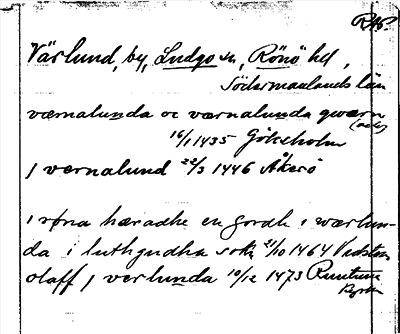 RAP.
Värlund, by, Ludgo sn, Rönö hd,
Södermanlands län
værnalunda oc værnalunda qwærn
16/1 1435 Göksholm
J vernalund 22/3 1446 Åkerö
i røna hæradhe en gordh i wærlun-
da i luthgudha sokn 21/10 1464 Vadsten
olaff j verlunda 10/12 1473